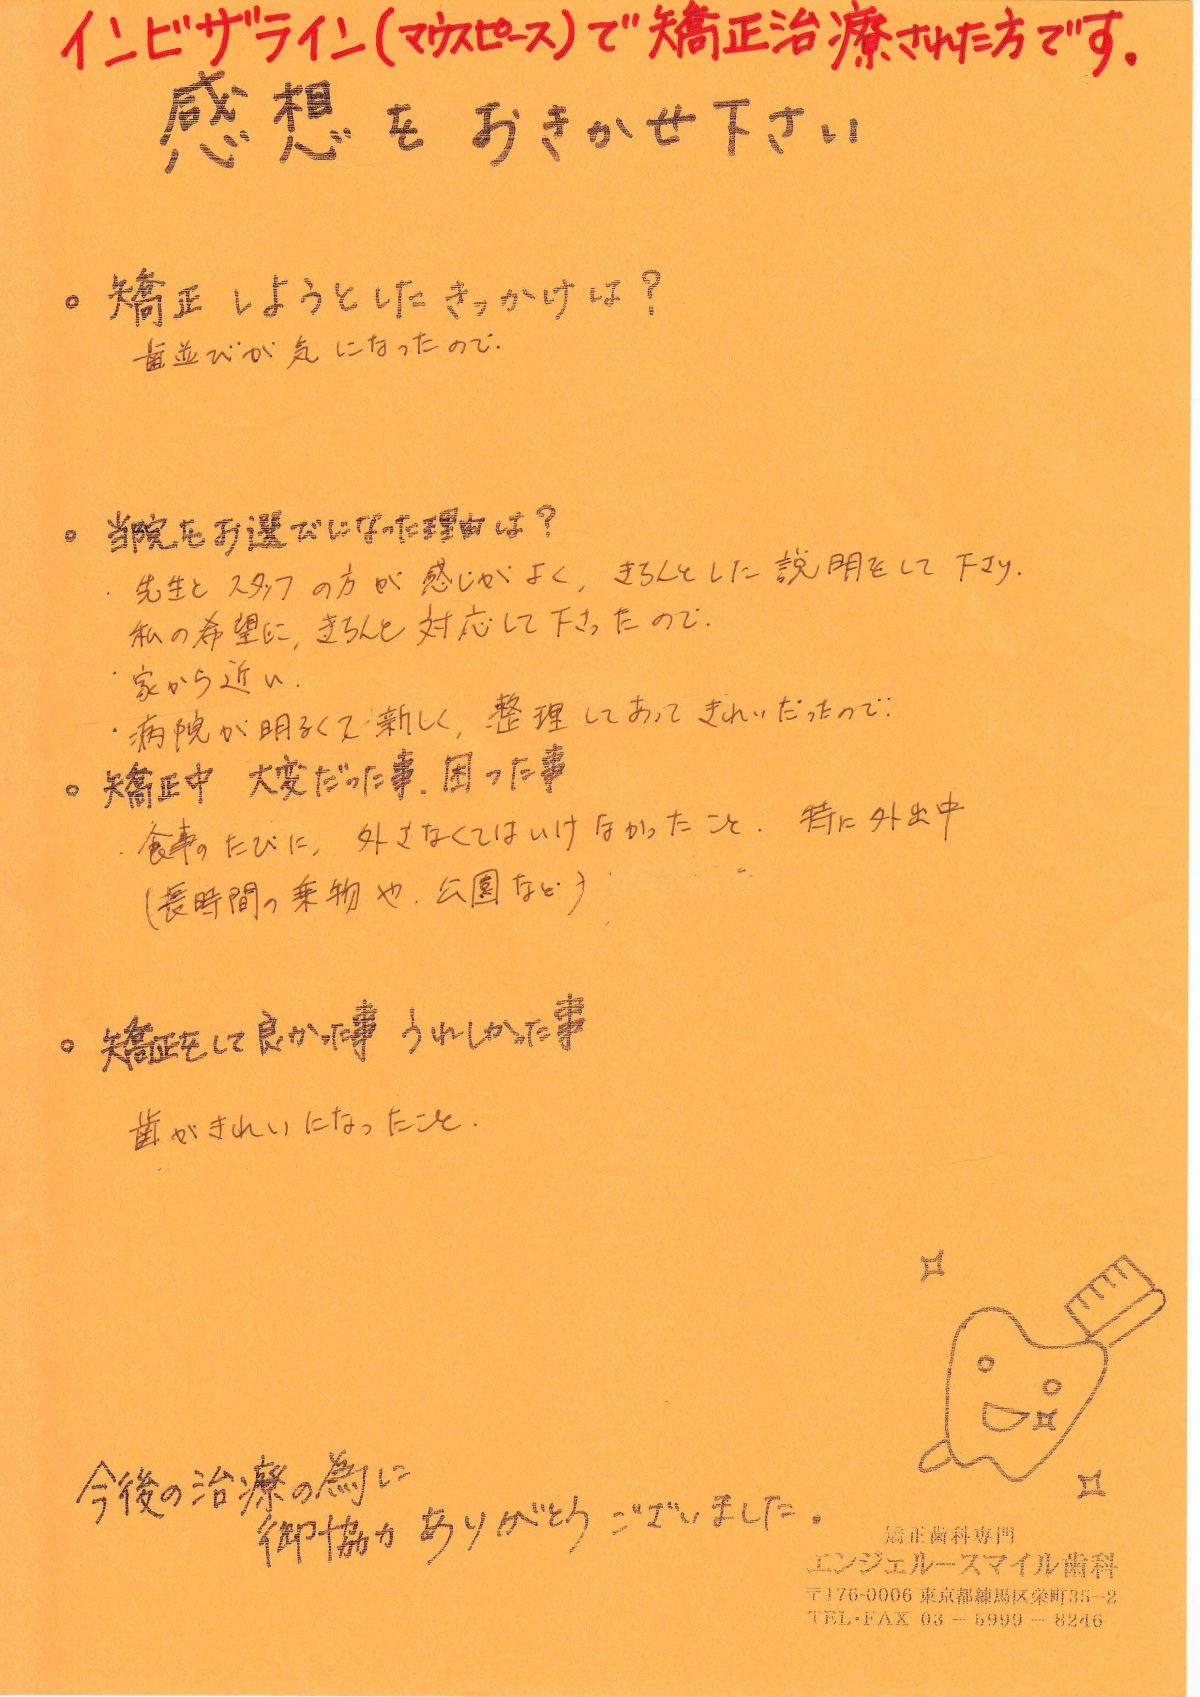 インビザライン(マウスピース)で矯正治療された方です。
感想をおきかせ下さい
。矯正しようとしたきっかけは？
歯並びが気になったので.
。当院をお選びになった理由は？
・先生とスタッフの方が感じがよく、きちんとした説明をして下さり.
私の希望に、きちんと対応して下さったので.
・家から近い.
・病院が明るくて新しく、整理してあってきれいだったので.
。矯正中 大変だった事. 困った事
・食事のたびに、外さなくてはいけなかったこと. 特に外出中
(長時間の乗物や. 公園など)
。矯正をして良かった事 うれしかった事
歯がきれいになったこと.
今後の治療の為に
御協力ありがとうございました。
矯正歯科専門
エンジェルースマイル歯科
〒176-0006 東京都練馬区栄町35-2
TEL・FAX 03-5999-8246